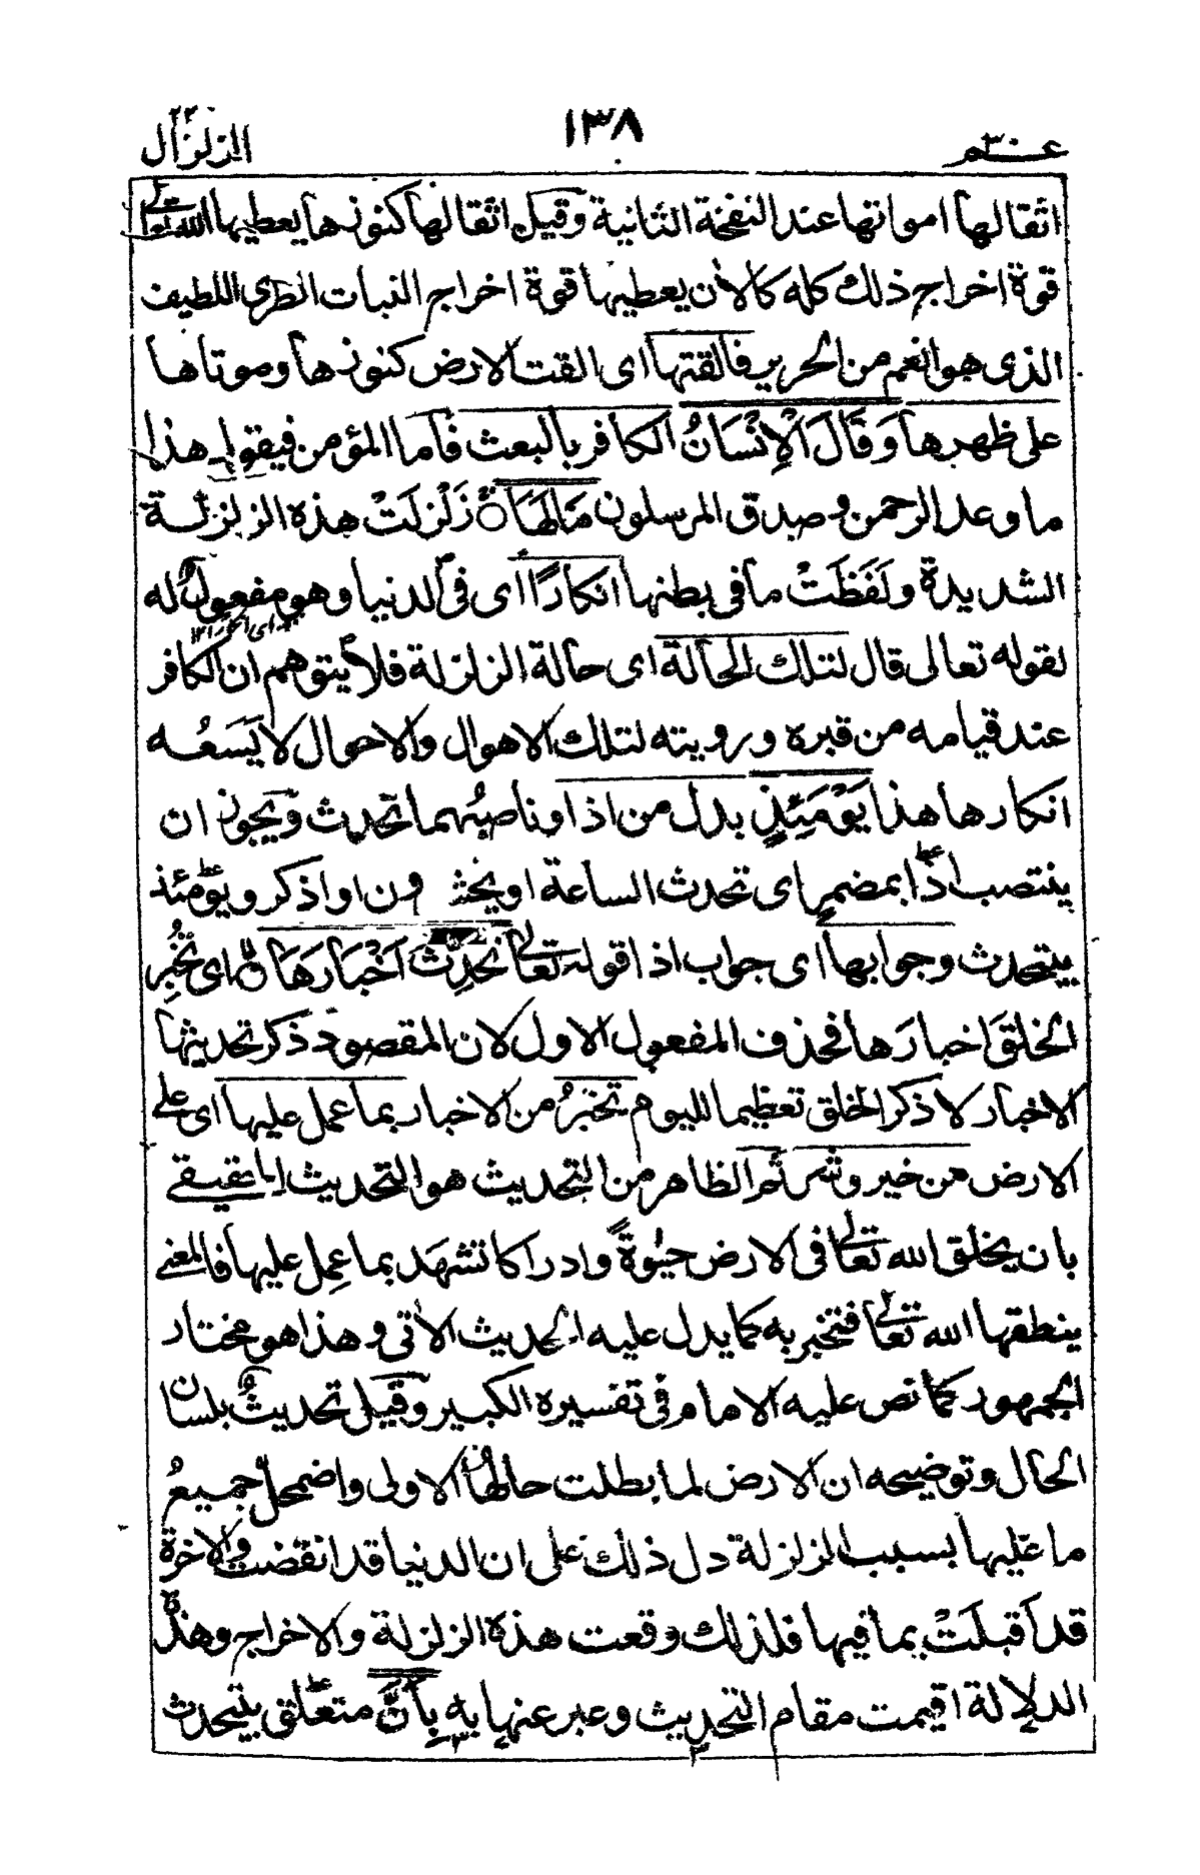 عم ٣٠
١٣٨
الزلزال
اثقالها امواتها عند النفخة الثانية وقيل اثقالها كنوزها يعطيها الله تعالى
قوة اخراج ذلك كله كالان يعطيها قوة اخراج النبات الطرى اللطيف
الذى هو انعم من الحرير فالقتها اى القت الارض كنوزها وموتاها
على ظهرها وَقَالَ الْاِنْسَانُ الكافر بالبعث فاما المؤمن فيقول هذا
ما وعد الرحمن وصدق المرسلون مَالَهَا زَلْزَلَتْ هذه الزلزلة
الشديدة ولَفَظَتْ ما فى بطنها انكارًا اى فى الدنيا وهو مفعول له
لقوله تعالى قال لتلك الحالة اى حالة الزلزلة فلا يتوهم ان الكافر
عند قيامه من قبره ورويته لتلك الاهوال والاحوال لا يَسَعُه
انكارها هذا يَوْمَئِذٍ بدل من اذا وناصبُهما تحدث ويجوز ان
ينتصب اذا بمضمرٍ اى تحدث الساعة او يحشرون او اذكر ويومئذ
بتحدث وجوابها اى جواب اذا قوله تعالى تُحَدِّثُ اَخْبَارَهَا اى تُخْبِر
الخلقَ اخبارَها فحذف المفعول الاول لان المقصود ذكر تحديثها
الاخبار لا ذكر الخلق تعظيما لليوم تخبرُ من الاخبار بما عمل عليها اى على
الارض من خير وشر ثم الظاهر من التحديث هو التحديث الحقيقے
بان يخلق الله تعالى فى الارض حيٰوةً وادراكا تشهَد بما عمِل عليها فالمعنے
ينطقها الله تعالى فتخبر به كما يدل عليه الحديث الأتى وهذا هو مختار
الجمهور كما نص عليه الامام فى تفسيره الكبير وقيل تحديثٌ بلسان
الحال وتوضيحه ان الارض لما بطلت حالها الاولى واضمحل جميعُ
ما عليها بسبب الزلزلة دل ذلك على ان الدنيا قد انقضت والاخرة
قد اَقبلَتْ بما فيها فلذلك وقعت هذه الزلزلة والاخراج وهذه
الدلالة اقيمت مقام التحديث وعبر عنها به بِاَنَّ متعلق بتحدث